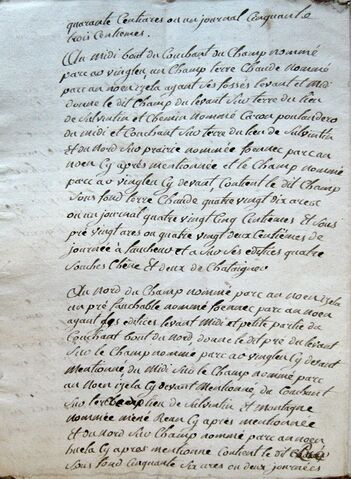 quarante Centiares ou un journal Cinquante
trois Centiemes.
Au midi bout du Couchant du Champ nommé
parc ao vinglen un Champ terre Chaude nommé
parc an noen izela ayant ses fossés levant et midi
donne le dit Champ du levant sur terre du lieu
de Salvintin et Chemin nommé
du midi et Couchant sur terre du lieu de Salvintin
et du Nord sur prairie nommée foennec parc an
noen Cy après mentionnée et le Champ nommé
parc ao vinglen Cy devant Contient le dit Champ
Sous fond terre Chaude quatre vingt dix ares
ou un journal quatre vingt Cinq Centiemes et Sous
pré vingt ares ou quatre vingt deux Centiemes de
journée à faucheur et a sur ses edifices quatre
Souches Chêne et deux de Chataigner
Au Nord du Champ nommé parc an noen izela
un pré fauchable nommé foennec parc an noen
ayant des edifices levant Midi et petite partie du
Couchant bout du Nord, donne le dit pré du levant
Sur le Champ nommé parc ao vinglen Cy devant
Mentionné, du Midi Sur le Champ nommé parc
an noen izela Cy devant Mentionné, du Couchant
Sur terre lieu de Salvintin et montagne
nommée méné Cy après mentionnée
et du Nord Sur Champ nommé parc an noen
huela Cy après mentionné Contient le dit
Sous fond Cinquante Six ares ou deux journées